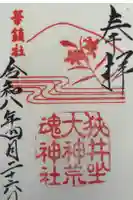 奉拝
狭井坐
大神荒
魂神社
華鎮社
令和八年四月二十六日